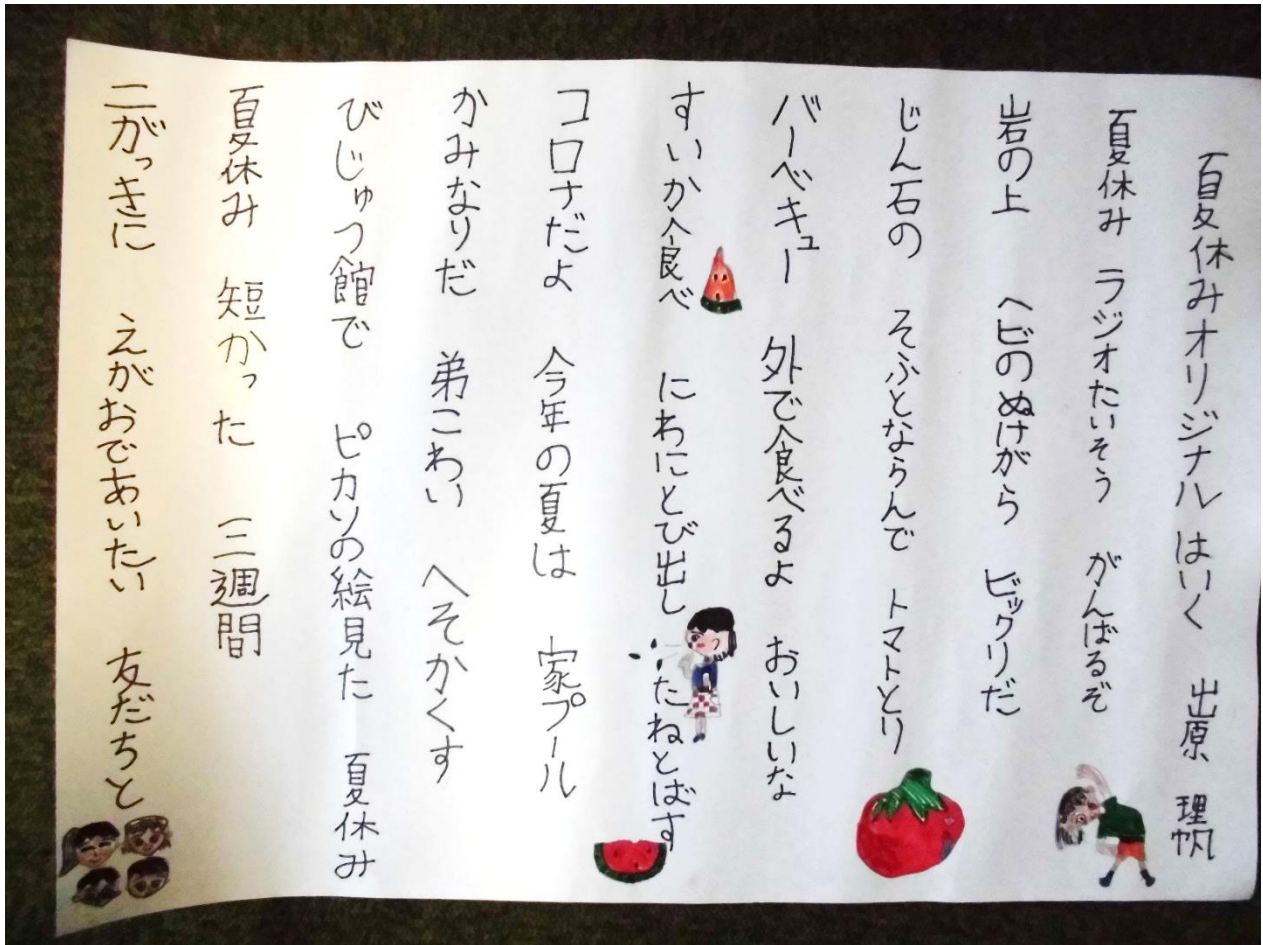 夏休みオリジナルはいく 出原 理帆
夏休み ラジオたいそう がんばるぞ
岩の上 ヘビのぬけがら ビックリだ
じん石の そふとならんで トマトとり
バーベキュー 外で食べるよ おいしいな
すいか食べ にわにとび出し たねとばす
コロナだよ 今年の夏は 家プール
かみなりだ 弟こわい へそかくす
びじゅつ館で ピカソの絵見た 夏休み
夏休み 短かった 三週間
二がっきに えがおであいたい 友だちと